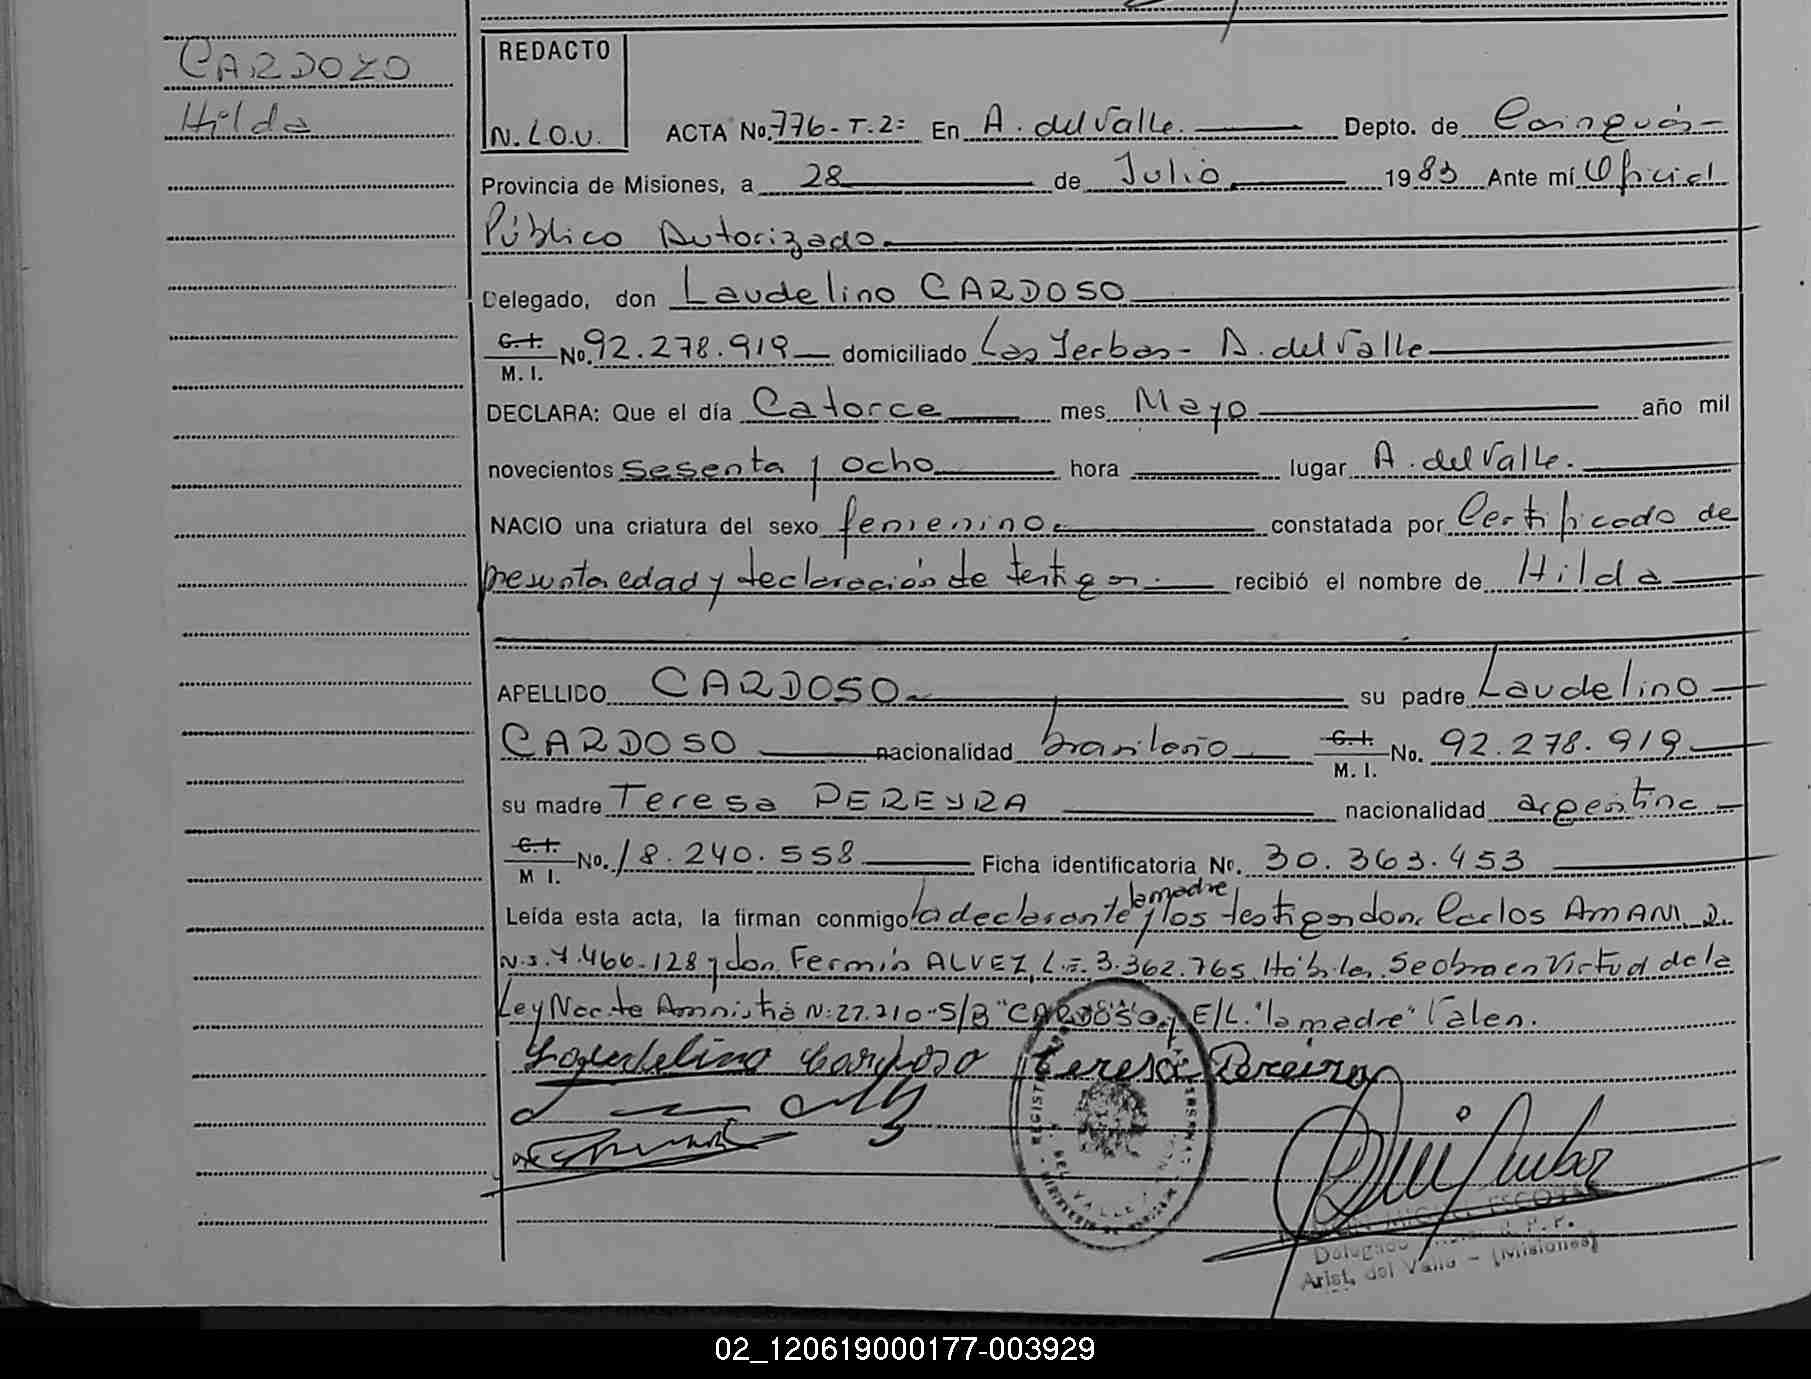 CARDOZO
Hilda
REDACTO
N. LOU.
ACTA No. 776 - T. 2= En A. del Valle. Depto. de Cainguás-
Provincia de Misiones, a 28 de Julio 1983 Ante mí Oficial
Público Autorizado.
Delegado, don Laudelino CARDOSO
C. I. M. I. No. 92.278.919 domiciliado Las Yerbas - A. del Valle
DECLARA: Que el día Catorce mes Mayo año mil
novecientos Sesenta y ocho hora lugar A. del Valle.
NACIO una criatura del sexo femenino. constatada por Certificado de
presunta edad y declaración de testigos. recibió el nombre de Hilda
APELLIDO CARDOSO su padre Laudelino
CARDOSO nacionalidad brasileño C. I. M. I. No. 92.278.919
su madre Teresa PEREYRA nacionalidad argentina
C. I. M I. No. 18.240.558 Ficha identificatoria Nº. 30.363.453
Leída esta acta, la firman conmigo la declarante la madre y los testigos don. Carlos AMANN D.
N.I. 7.466.128 y don Fermín ALVEZ, L.E. 3.362.765 Hábiles. Se obra en Virtud de la
Ley Nac. de Amnistía N: 22.210 - S/B "CARDOSO y E/L. "la madre" Valen.
Laudelino Cardoso Teresa Pereira
REGISTR
DEL VALLE
MINISTERIO DE
MIGUEL ESCOBAR
Delegado R. P. P.
Arist. del Valle - (Misiones)
02_120619000177-003929